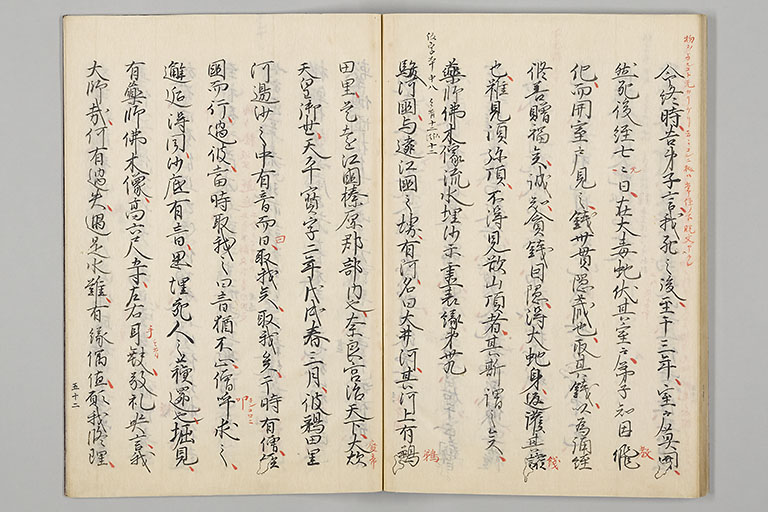 今終時告弟子言我死之後至于三年室戸莫開
然死後經七々日在大毒蛇伏其室戸弟子知因
化而開室戸見之錢卅貫隱藏也取其錢以爲誦經
修善贈福矣誠知貪錢因隱得大蛇身返護其
也雖見須弥頂不得見欲山頂者其斯謂之矣
藥師佛木像流水埋沙示靈表縁第卅九
駿河國与遠江國之堺有河名曰大井河其河上有鵜
鵜
田里是遠江國榛原郡部内也奈良宮治天下大炊
天皇御世天平寶字二年戊戌春三月彼鵜田里
河邊沙之中有音而曰取我矣取我矣于時有僧經
國而行過彼當時取我之曰音猶不止僧呼求之
邂逅得聞沙底有音思埋死人之蘓還也堀見
有藥師佛木像高六尺五寸左右耳缺敬礼哭言
大師哉何有過失遇是水難有縁偶値願我修理
五十二